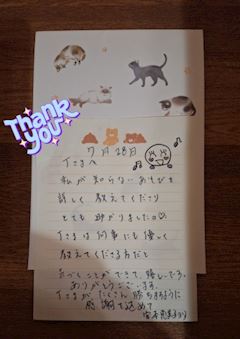 Thank
you
7月28日
Tさまへ
私が知らないあそびを
詳しく教えてくださり
とても助かりました
Tさまは何事にも優しく
教えてくださる方だと
ことができて、嬉しいです。
ありがとうございます。
Tさまが、たくさん勝ちますように
感謝を込めて